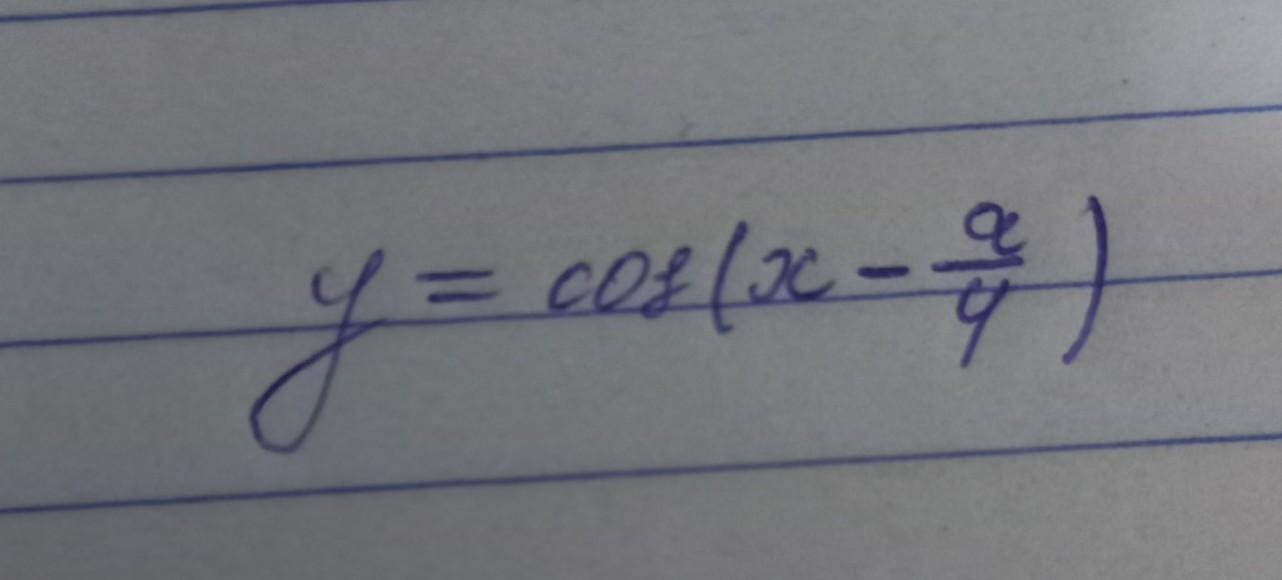 y = cos(x - a/4)